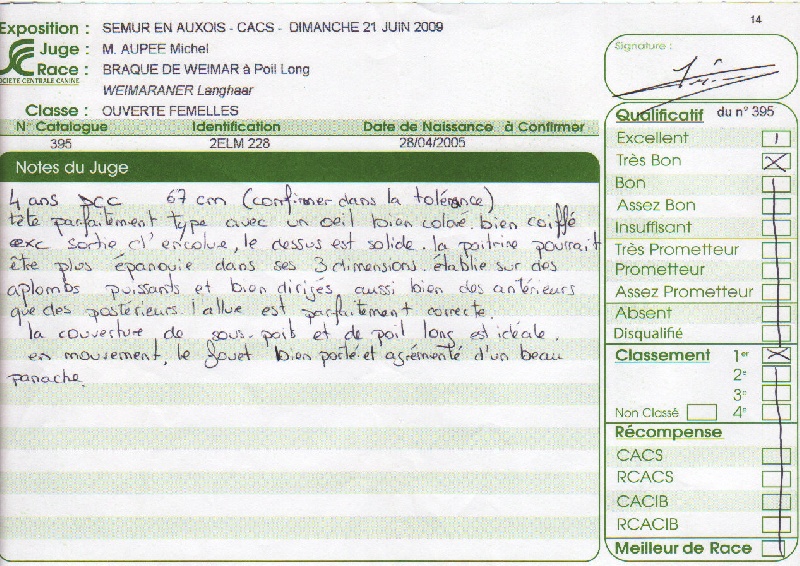 14
Exposition : SEMUR EN AUXOIS - CACS - DIMANCHE 21 JUIN 2009
Juge : M. AUPEE Michel
Race : BRAQUE DE WEIMAR à Poil Long
SOCIETE CENTRALE CANINE
WEIMARANER Langhaar
Classe : OUVERTE FEMELLES
N° Catalogue Identification Date de Naissance à Confirmer
395 2ELM 228 28/04/2005
Notes du Juge
4 ans 67 cm (confirmer dans la tolérance)
tête parfaitement type avec un oeil bien coloré. bien coiffé
exc sortie d'encolure, le dessus est solide. la poitrine pourrait
être plus épanouie dans ses 3 dimensions. établie sur des
aplombs puissants et bien dirigés aussi bien des antérieurs
que des postérieurs. l'allure est parfaitement correcte.
la couverture de sous-poil et de poil long est idéale.
en mouvement, le fouet bien porté et agrémenté d'un beau
panache.
Signature :
Qualificatif du n° 395
Excellent
Très Bon
Bon
Assez Bon
Insuffisant
Très Prometteur
Prometteur
Assez Prometteur
Absent
Disqualifié
Classement 1er
2e
3e
Non Classé 4e
Récompense
CACS
RCACS
CACIB
RCACIB
Meilleur de Race